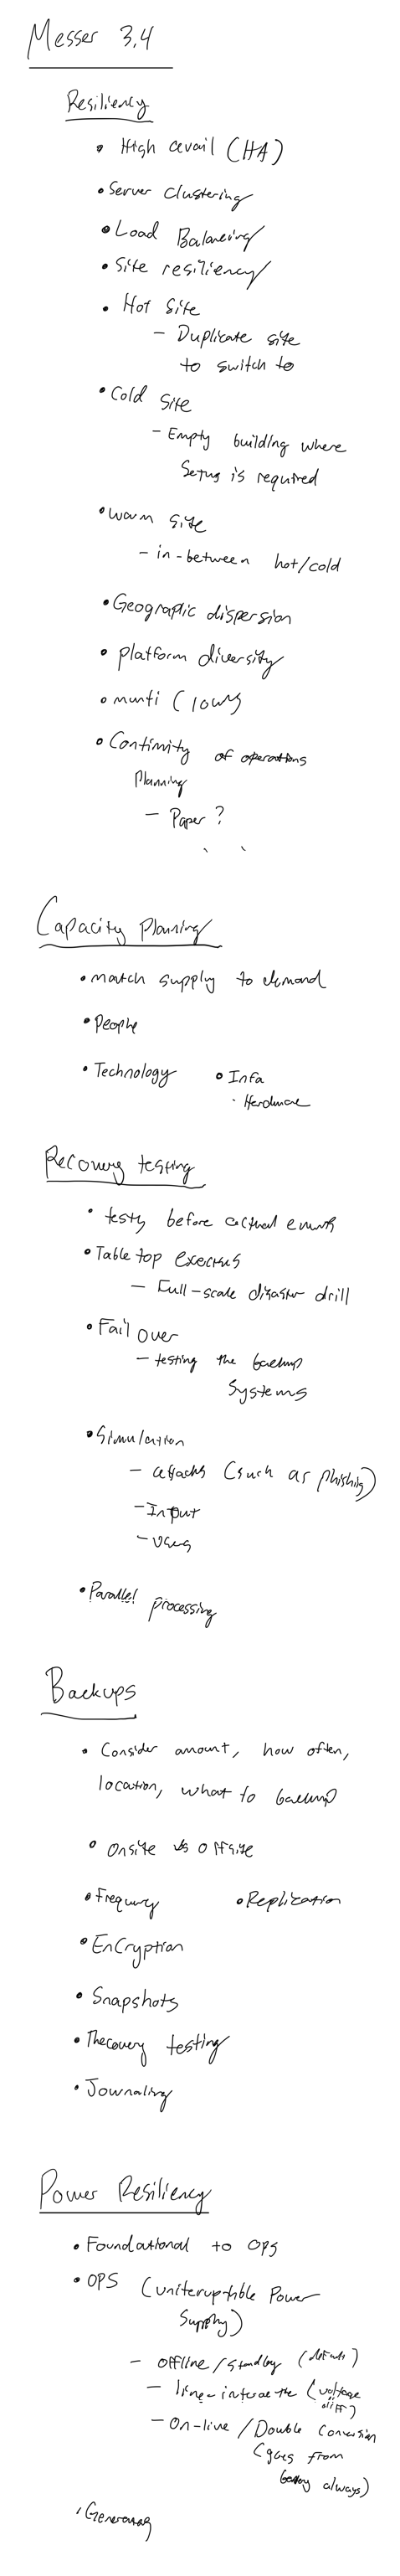 Messer 3.4
Resiliency
• High avail (HA)
• Server clustering
• Load Balancing
• Site resiliency
• Hot Site
– Duplicate site
to switch to
• Cold Site
– Empty building where
Setup is required
• Warm site
– in-between hot/cold
• Geographic dispersion
• platform diversity
• multi Clouds
• Continuity of operations
Planning
– Paper?
Capacity planning
• match supply to demand
• People
• Technology • Infa
• Hardware
Recovery testing
• testing before actual events
• Table top
– Full-scale disaster drill
• Fail over
– testing the backup
Systems
• Simulation
– attacks (such as phishing)
– Input
– Users
• Parallel processing
Backups
• Consider amount, how often,
location, what to backup
• Onsite vs offsite
• Frequency • Replication
• EnCryption
• Snapshots
• Recovery testing
• Journaling
Power Resiliency
• Foundational to OPS
• OPS (uniteruptible Power
Supply)
– offline/standby
– line-interactive (voltage
diff)
– On-line/Double Conversion
(goes from
battery always)
• Generators